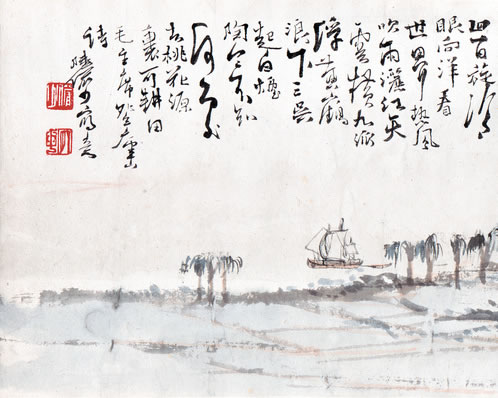 四百旋冷
眼向洋看
世界热风
吹雨灑江天
雲横九派
浮黄鶴
浪下三吴
起白煙
陶令不知
何處
去桃花源
裏可耕田
毛主席登廬山
詩 寫意